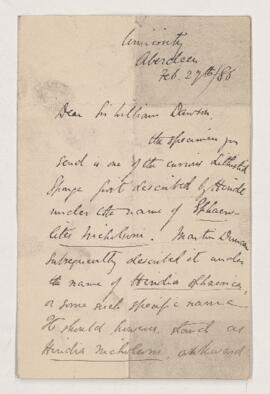 University
Aberdeen
Feb. 27th/86
Dear Sir William Dawson,
the specimen you
send is one of the curious Lithistid
Sponge first described by Hinde
under the name of Sphaero-
lites Nicholsoni. Martin Duncan
subsequently described it under
the name of Hindia sphaerica,
or some such specific name.
It should however, stand as
Hindia Nicholsoni, awkward